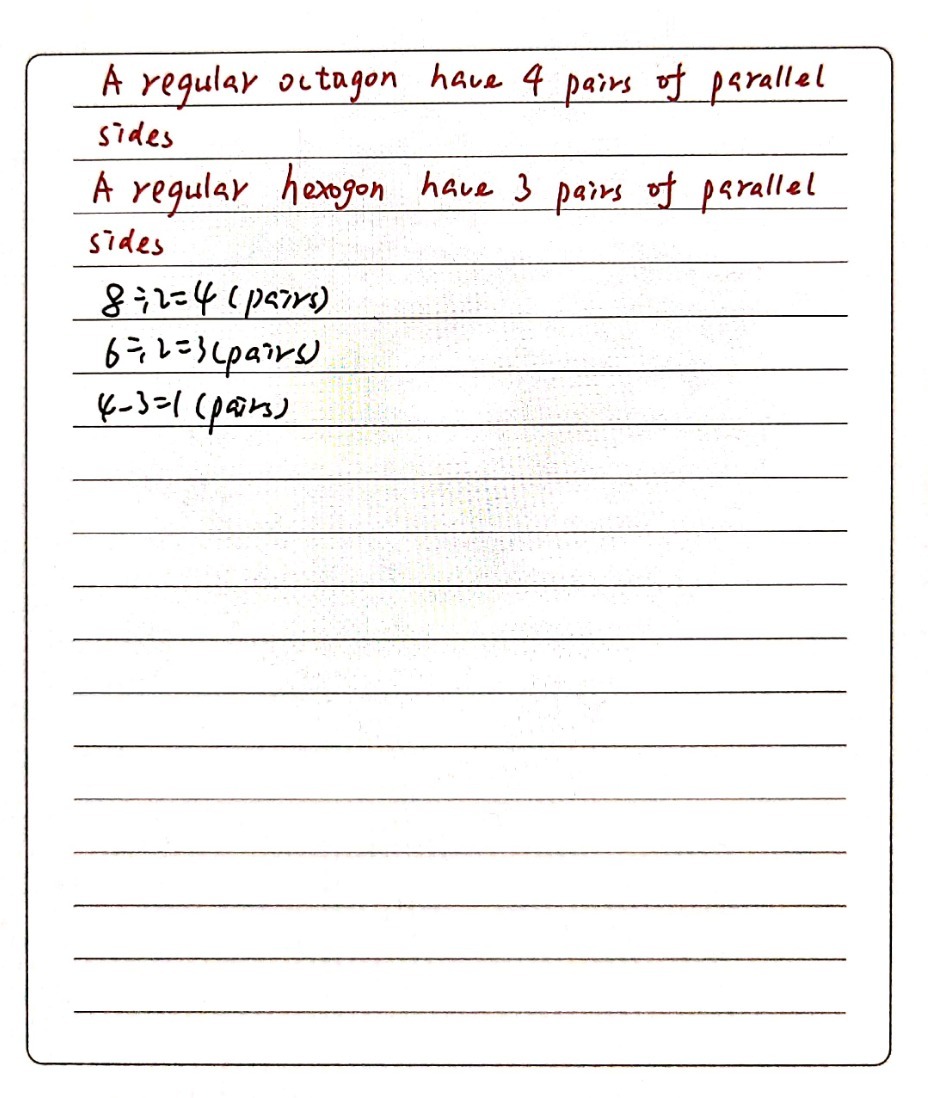 A regular octagon have 4 pairs of parallel
sides
A regular hexogon have 3 pairs of parallel
sides
8÷2=4 (pairs)
6÷2=3(pairs)
4-3=1 (pairs)